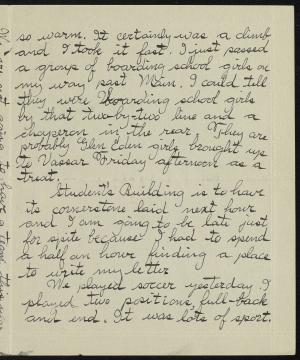 so warm. It certainly was a climb
and I took it fast. I just passed
a group of boarding school girls on
my way past Main. I could tell
they were boarding school girls
by that two-by-two line and a
chaperon in the rear. They are
probably Glen Eden girls brought up
to Vassar Friday afternoon as a
treat.
Student's Building is to have
its cornerstone laid next hour
and I am going to be late just
for spite because I had to spend
a half an hour finding a place
to write my letter
We played soccer yesterday. I
played two positions, full-back
and end. It was lots of sport.